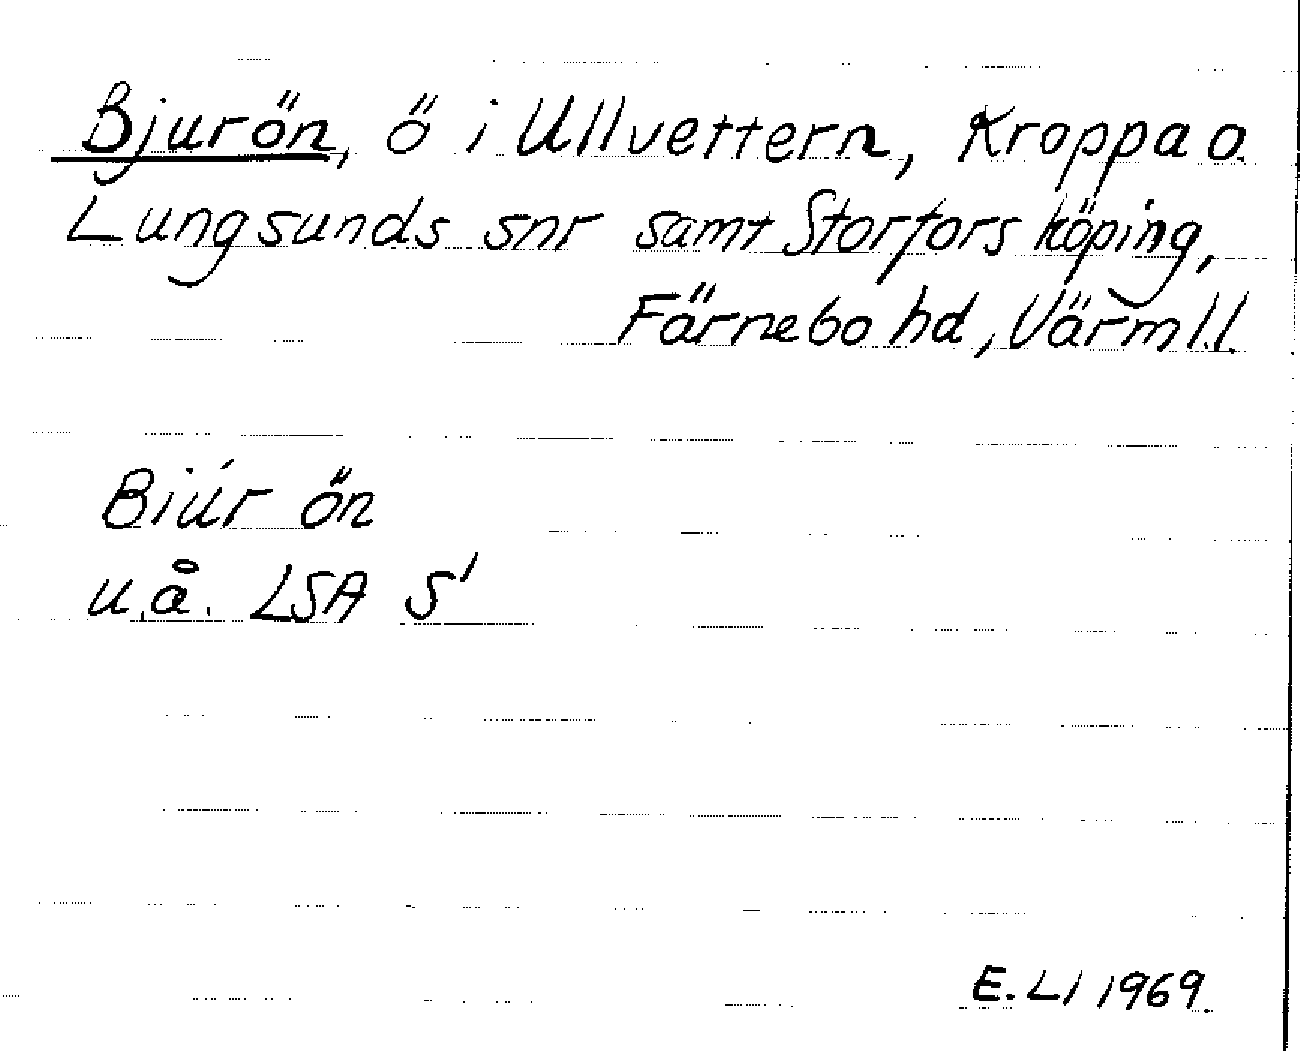 Bjurön, ö i Ullvettern, Kroppa o.
Lungsunds snr samt Storfors köping,
Färnebo hd, Värml.l.
Biúr ön
u.å. LSA S'
E. LI 1969.